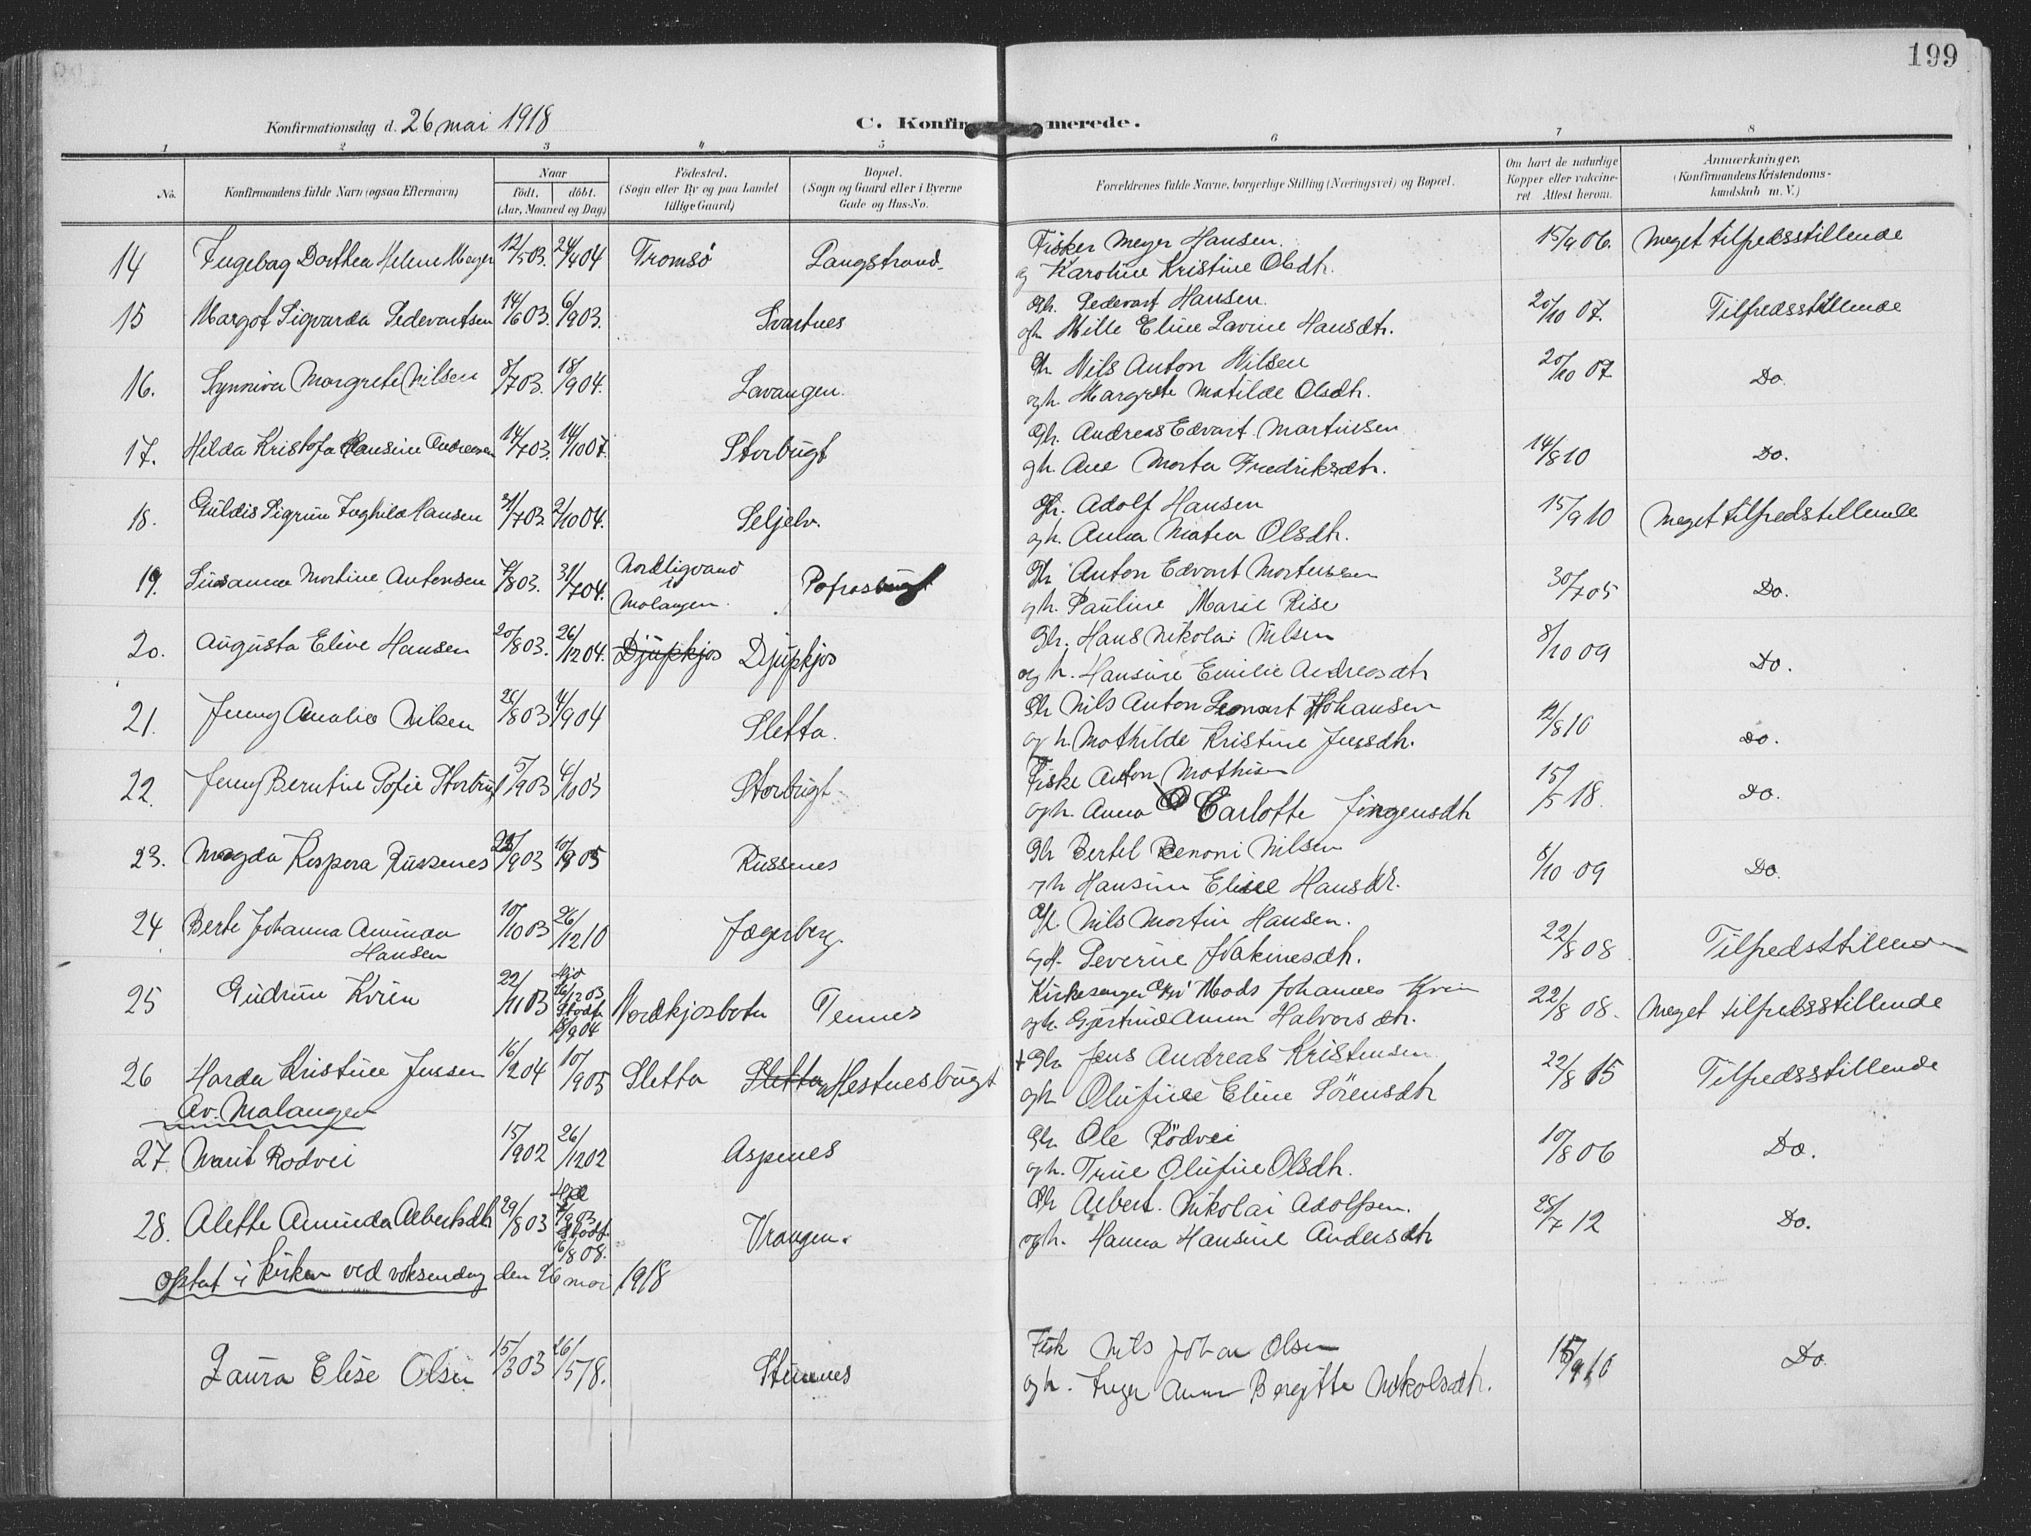 199
Konfirmationsdag d. 26 mai 1918 C. Konfirmerede.
1 2 3 4 5 6 7 8
No. Konfirmandens fulde Navn (ogsaa Efternavn)
Naar
født. døbt.
(Aar, Maaned og Dag)
Fødested.
(Sogn eller By og paa Landet
tillige Gaard)
Bopæl.
(Sogn og Gaard eller i Byerne
Gade og Hus-No.
Forældrenes fulde Navne, borgerlige Stilling (Næringsvei) og Bopæl.
Om havt de naturlige
Kopper eller vaccine-
ret Attest herom.
Anmærkninger.
(Konfirmandens Kristendoms-
kundskab m. V.)
14 Dorthea Helene Meyer 12/5 03. 24/4 04 Tromsø Langstrand Fisker Meyer Hansen. 15/9 06. Meget tilfredsstillende
og Karoline Kristine Olsdtr.
15 Margot Sigvarda Sedevartsen 14/6 03. 6/9 03. Svartnes Gbr. Sedevart Hansen. 20/10 07. Tilfredsstillende
og h. Mille Eline Lavine Hansdtr.
16. Synniva Margrete Nilsen 8/7 03. 18/9 04. Lavangen. Gbr Nils Anton Nilsen 20/10 07 Do.
og h. Margrete Matilde Olsdtr.
17. Hilda Kristofa Hansine Andreasen 14/7 03. 14/10 07. Storbugt Gbr. Andreas Edvart Martinsen 14/8 10 Do.
og h. Ane Morta Fredriksdtr.
18. Guldis Sigrun Inghild Hansen 21/7 03. 2/10 04. Seljelv. Gbr. Adolf Hansen 15/9 10 Meget tilfredstillende
og h. Anna Matea Olsdtr.
19. Susanna Martine Antonsen 7/8 03. 31/7 04. Nordligvand i Malangen. Gbr Anton Edvart Mortensen 30/7 05 Do.
og h. Pauline Marie Rise
20. Augusta Eline Hansen 20/8 03. 26/12 04. Djupkjos Djupkjos Gbr. Hans Nikolai Nilsen 8/10 09 Do.
og h. Hansine Emilie Andreasdtr
21. Jenny Amalie Nilsen 26/8 03 4/9 04 Sletta. Gbr Nils Anton Leonart Johansen 12/8 10 Do.
og h. Mathilde Kristine Jensdtr.
22. Jenny Berntine Sofie Storbugt 5/9 03 4/10 03 Storbugt Fiske Anton Mathisen 15/5 18. Do.
og h. Anna Carlotte Jörgensdtr
23. Magda Kaspera Russenes 22/9 03 10/9 05 Russenes Gbr Bertel Benoni Nilsen 8/10 09 Do.
og h Hansine Elise Hansdtr.
24 Berte Johanna Aminda 10/10 03 26/12 10 Jægerberg. Gbr. Nils Martin Hansen. 22/8 08 Tilfredsstillende
Hansen
og h. Severine Joakimsdtr.
25 Gudrun Kvien 22/11 03 Hjd 26/12 03 Stadf. 18/9 04 Nordkjosbotn Tennes Kirkesanger Mads Johannes Kvien 22/8 08. Meget tilfredsstillende
og h. Gjertrud Anna Halvorsdtr.
26 Harda Kristine Jensen 16/2 04 10/9 05 Sletta Sletta Hestnesbugt + Gbr Jens Andreas Kristensen 22/8 15 Tilfredsstillende
og h Olufine Eline Sörensdtr
Av. Malangen
27. Marit Rødvei 15/9 02 26/12 02 Aspenes Gbr. Ole Rödvei 10/8 06 Do.
og h. Trine Olufine Olsdtr.
28. Alette Aminda Albertsdtr 29/8 03 Hjd 7/9 03 Stadf. 6/8 08. Vrangen. Gbr Albert Nikolai Adolfsen. 28/7 12 Do.
og h. Hanna Hansine Andersdtr
optat i kirken ved voksendaab den 26 mai 1918
Laura Elise Olsen 15/3 03 26/5 18. Stennes Fisk Nils Johan Olsen 15/9 10 Do.
og h. Inger Anna Bergitte Nikolsdtr.